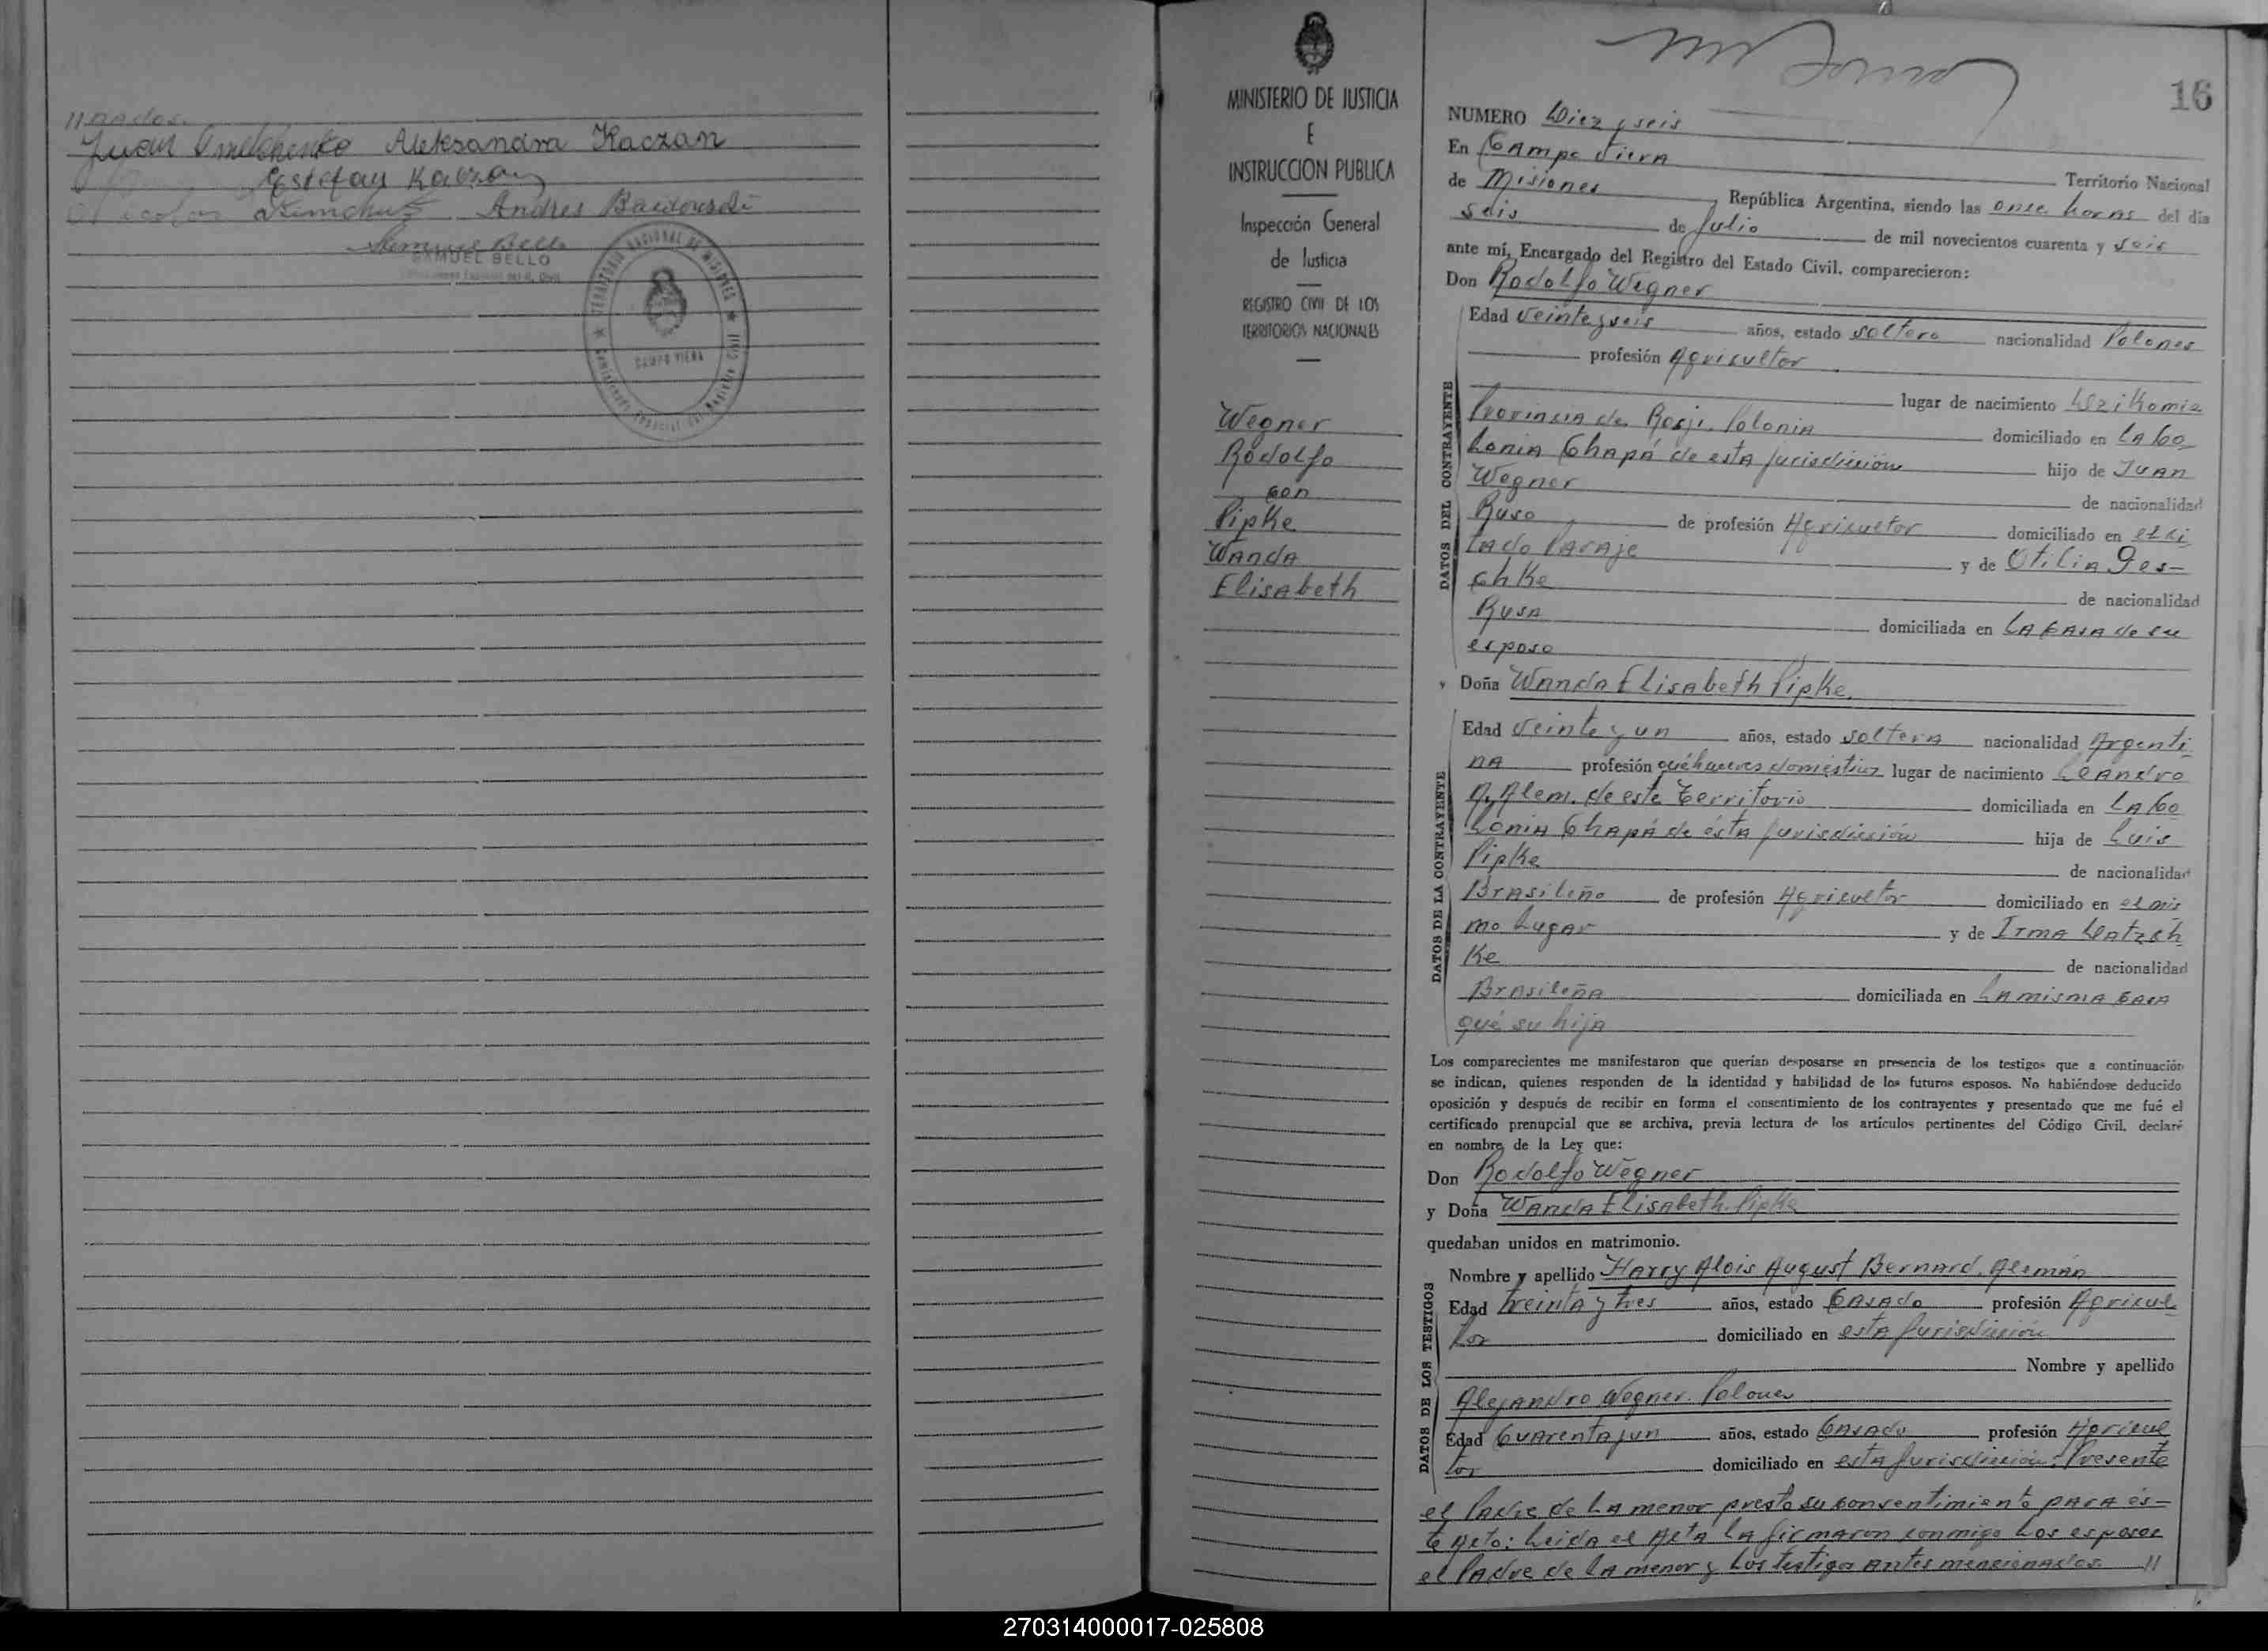 Juan Omelchenko Aleksandra Kaczan
Estefan Kaczan
Andres
Samuel Bello
SAMUEL BELLO
TERRITORIO NACIONAL DE MISIONES
CAMPO VIERA
MINISTERIO DE JUSTICIA
E
INSTRUCCION PUBLICA
Inspección General
de Justicia
REGISTRO CIVIL DE LOS
TERRITORIOS NACIONALES
Wegner
Rodolfo
con
Pipke
Wanda
Elisabeth
16
NUMERO Diez y seis
En Campo Viera Territorio Nacional
de Misiones, República Argentina, siendo las once horas del día
seis de Julio de mil novecientos cuarenta y seis
ante mí, Encargado del Registro del Estado Civil, comparecieron:
Don Rodolfo Wegner
DATOS DEL CONTRAYENTE
Edad veinte y seis años, estado soltero nacionalidad Polones
profesión Agricultor
lugar de nacimiento
Provincia de Polonia domiciliado en la Co
lonia Chapá de esta jurisdicción hijo de Juan
Wegner de nacionalidad
Ruso de profesión Agricultor domiciliado en el ci
tado Paraje y de Otilia Ges-
chke de nacionalidad
Rusa domiciliada en la casa de su
esposo
y Doña Wanda Elisabeth Pipke.
DATOS DE LA CONTRAYENTE
Edad veinte y un años, estado soltera nacionalidad Argenti
na profesión quéhaceres domésticos lugar de nacimiento Leandro
N. Alem. de este Territorio domiciliada en la Co
lonia Chapá de ésta jurisdicción hija de Luis
Pipke de nacionalidad
Brasileño de profesión Agricultor domiciliado en el mis
mo lugar y de Irma
ke de nacionalidad
Brasileña domiciliada en la misma casa
qué su hija
Los comparecientes me manifestaron que querían desposarse en presencia de los testigos que a continuación
se indican, quienes responden de la identidad y habilidad de los futuros esposos. No habiéndose deducido
oposición y después de recibir en forma el consentimiento de los contrayentes y presentado que me fué el
certificado prenupcial que se archiva, previa lectura de los artículos pertinentes del Código Civil, declaré
en nombre de la Ley que:
Don Rodolfo Wegner
y Doña Wanda Elisabeth Pipke
quedaban unidos en matrimonio.
DATOS DE LOS TESTIGOS
Nombre y apellido Harry Alois August Bernard, Alemán
Edad treinta y tres años, estado Casado profesión Agricul
tor domiciliado en esta jurisdicción
Nombre y apellido
Alejandro Wegner. Polones
Edad Cuarenta y un años, estado Casado profesión Agricul
tor domiciliado en esta jurisdicción. Presente
el Padre de la menor presto su consentimiento para és-
te Acto: Leida el Acta la firmaron conmigo los esposos
el Padre de la menor y los testigo antes mencionados //
270314000017-025808